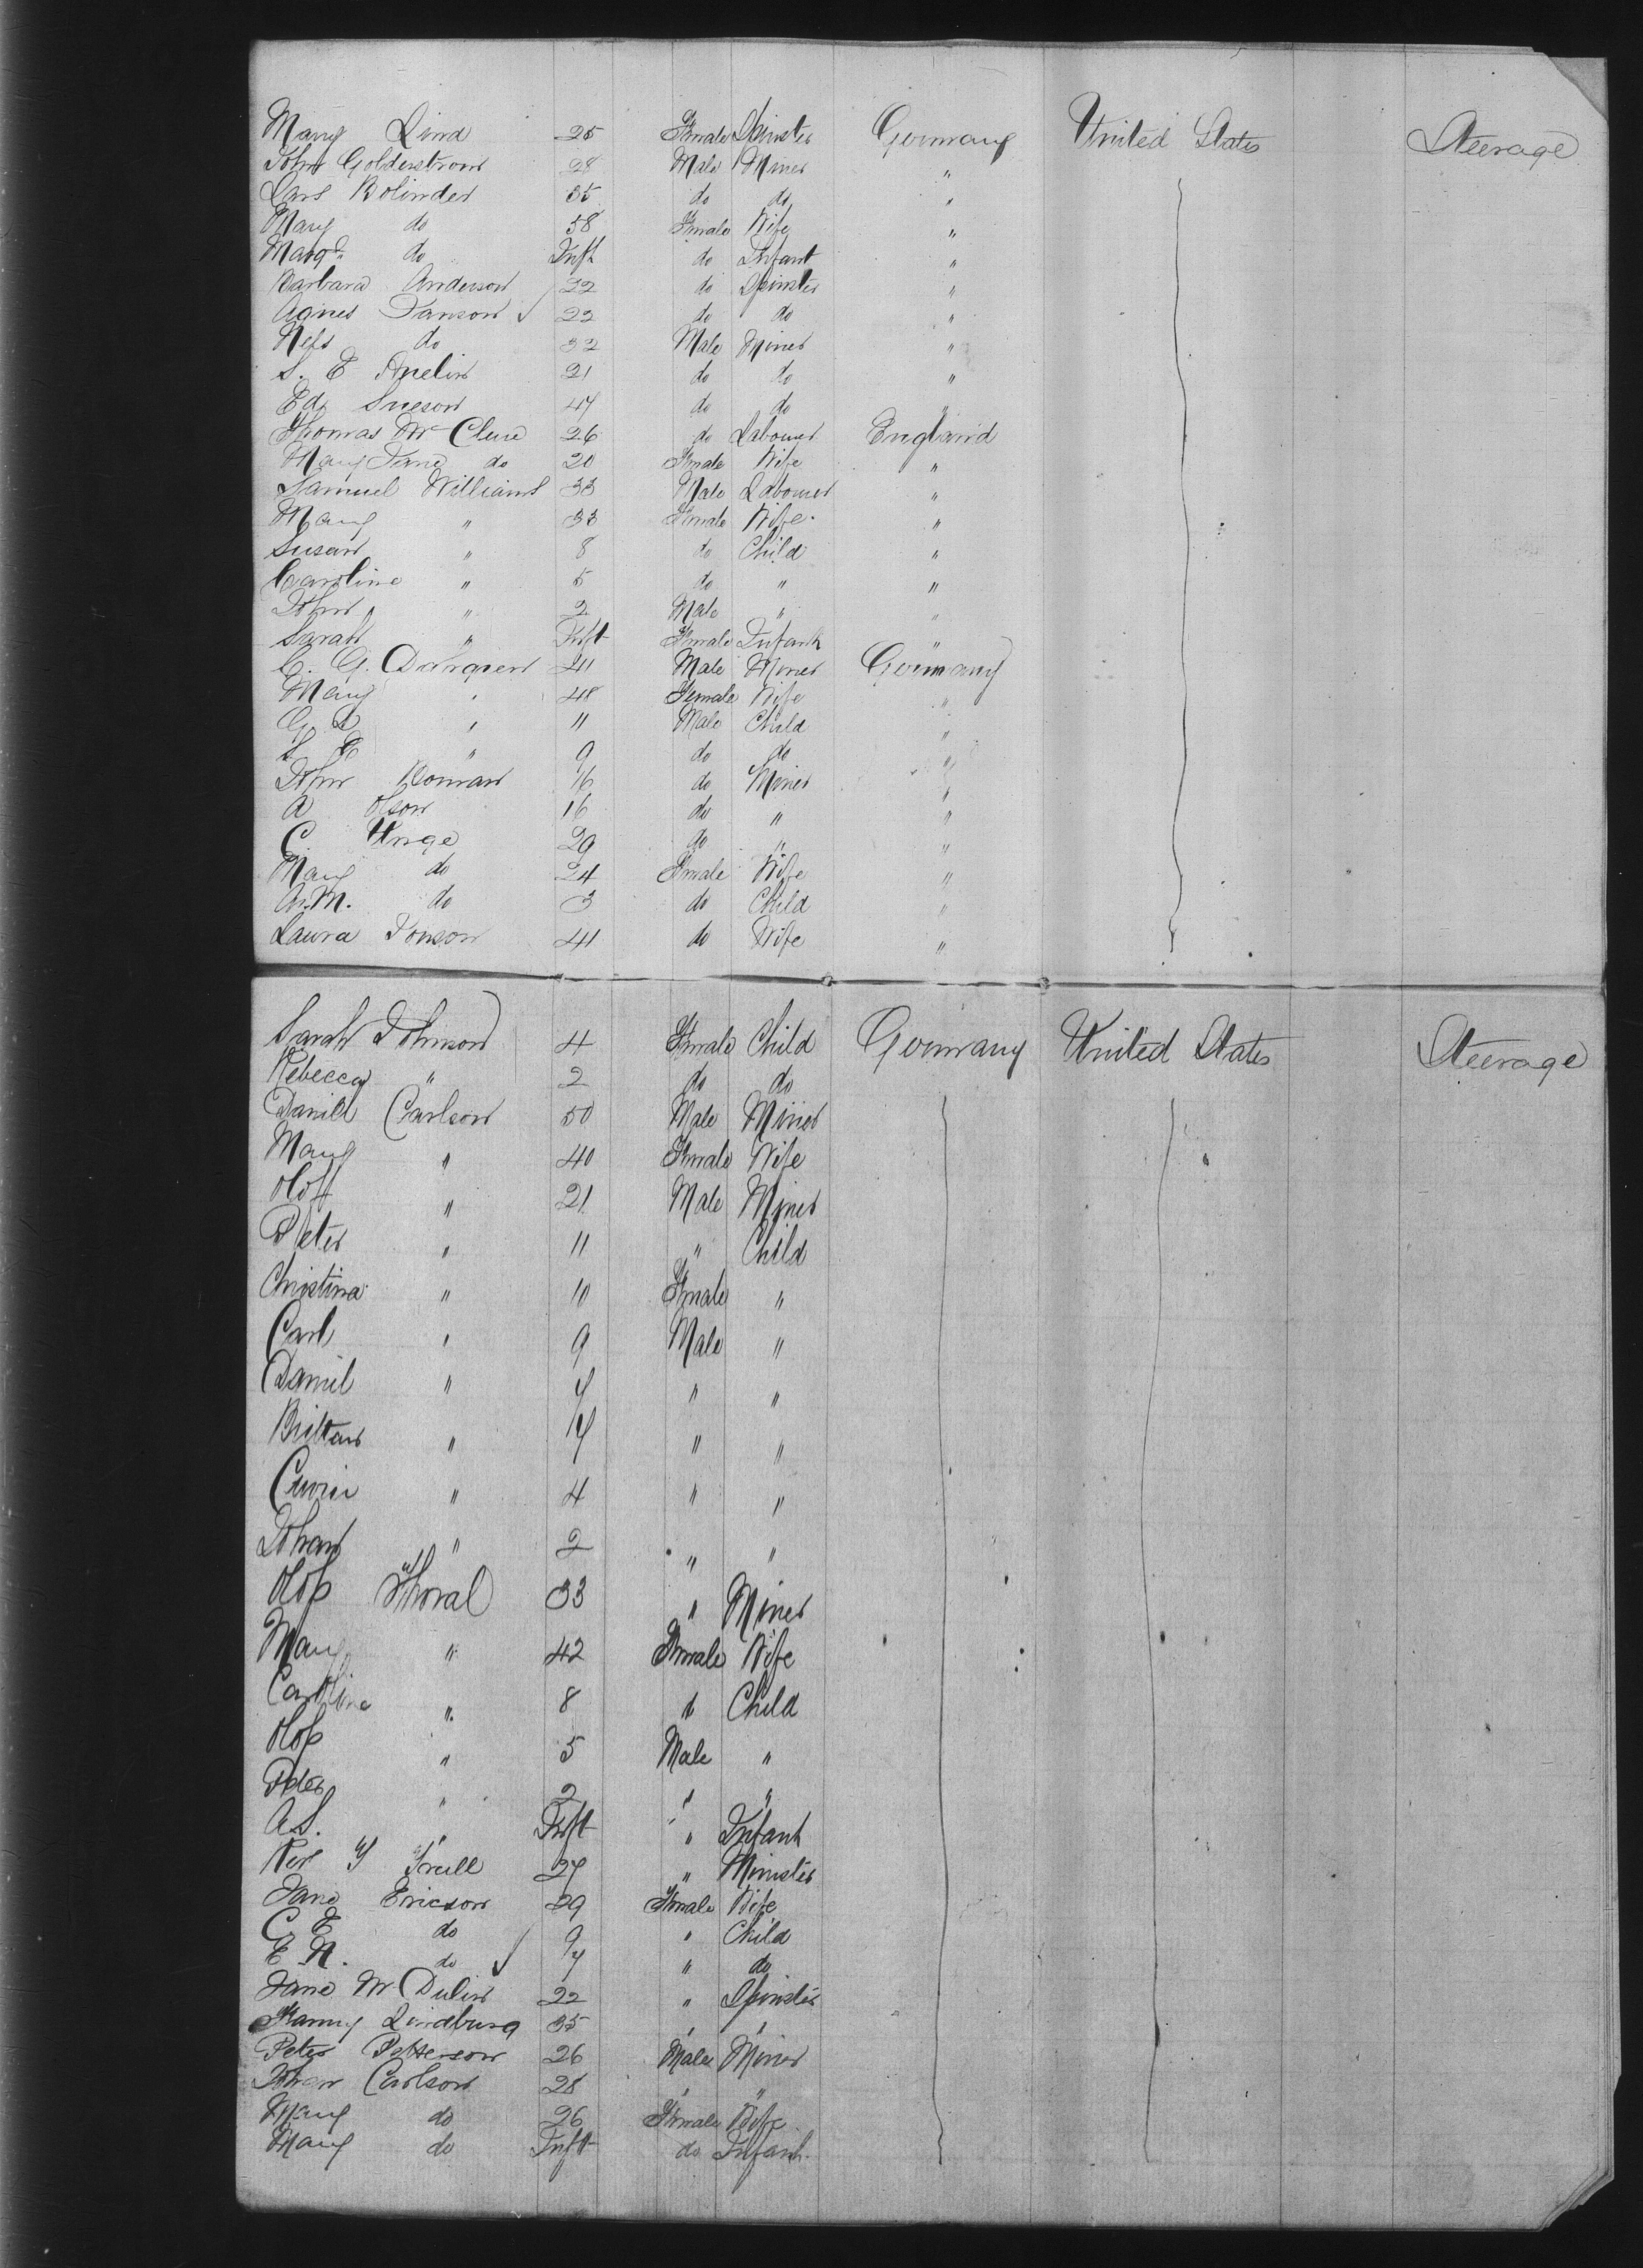 Mary Lind 25 Female Spinster Germany United States Steerage
John Golderstrom 28 Male Miner "
Lars Bolinder 35 do do "
Mary do 38 Female Wife "
Margt do Inft do Infant "
Barbara Anderson 22 do Spinster "
Agnes Janson 22 do do "
Nels do 32 Male Miner "
S. E 21 do do "
Ed Sueson 47 do do "
Thomas Mc Clure 26 do Labourer England
Mary Jane do 20 Female Wife "
Samuel Williams 33 Male Labourer "
Mary " 33 Female Wife "
Susan " 8 do Child "
Caroline " 5 do " "
John " 2 Male " "
Sarah " Inft Female Infant "
C. G. 41 Male Miner Germany
Mary " 48 Female Wife "
G. L " 11 Male Child "
S. E " 9 do do "
John Roman 16 do Miner "
A Olson 16 do " "
C. Unge 29 do " "
Mary do 24 Female Wife "
A. M. do 3 do Child "
Laura Jonson 41 do Wife "
Sarah Johnson 4 Female Child Germany United States Steerage
Rebecca " 2 do do
Daniel Carlson 50 Male Miner
Mary " 40 Female Wife
Oloff " 21 Male Miner
Peter " 11 " Child
Christina " 10 Female "
Carl " 9 Male "
Daniel " 7 " "
" 7 " "
" 4 " "
Johan " 2 " "
Olof Thoral 33 " Miner
Mary " 42 Female Wife
Caroline " 8 " Child
Olof " 5 Male "
Peter " 2 " "
A. S. " Inft " Infant
Rev 27 " Minister
Jane Ericson 29 Female Wife
C E do 9 " Child
E N. do 7 " do
Jane Mc Dulin 22 " Spinster
Fanny Lindburg 35 " "
Peter Petterson 26 Male Miner
Johan Carlson 28 " "
Mary do 26 Female Wife
Mary do Inft do Infant